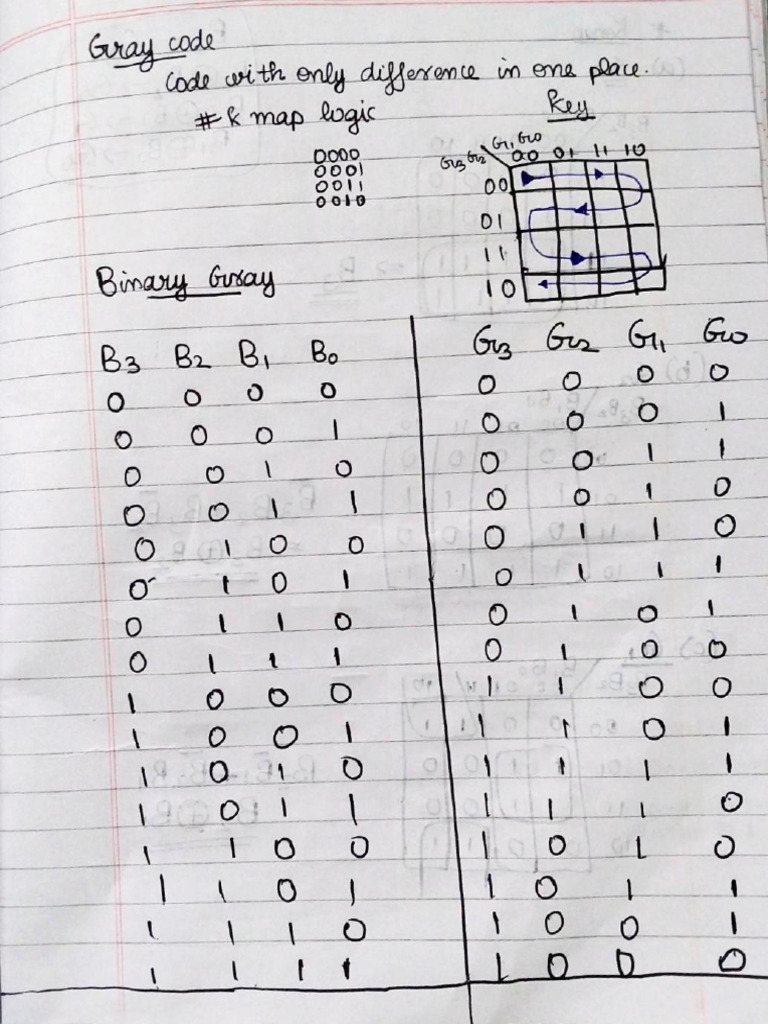 Gray code
Code with only difference in one place.
# k map logic
Key
0000
0001
0011
0010
G3 G2 \ G1, G0
00 01 11 10
00
01
11
10
Binary Gray
B3 B2 B1 B0 G3 G2 G1 G0
0 0 0 0 0 0 0 0
0 0 0 1 0 0 0 1
0 0 1 0 0 0 1 1
0 0 1 1 0 0 1 0
0 1 0 0 0 1 1 0
0 1 0 1 0 1 1 1
0 1 1 0 0 1 0 1
0 1 1 1 0 1 0 0
1 0 0 0 1 1 0 0
1 0 0 1 1 1 0 1
1 0 1 0 1 1 1 1
1 0 1 1 1 1 1 0
1 1 0 0 1 0 1 0
1 1 0 1 1 0 1 1
1 1 1 0 1 0 0 1
1 1 1 1 1 0 0 0